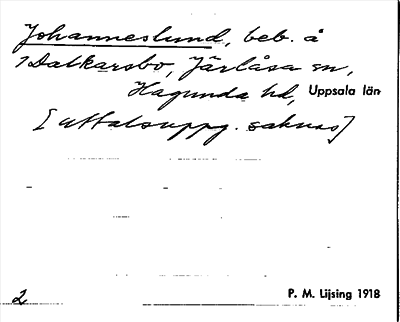 Johanneslund, beb. å
1 Dalkarsbo, Järlåsa sn,
Hagunda hd, Uppsala län
[uttalsuppg. saknas]
2
P. M. Lijsing 1918